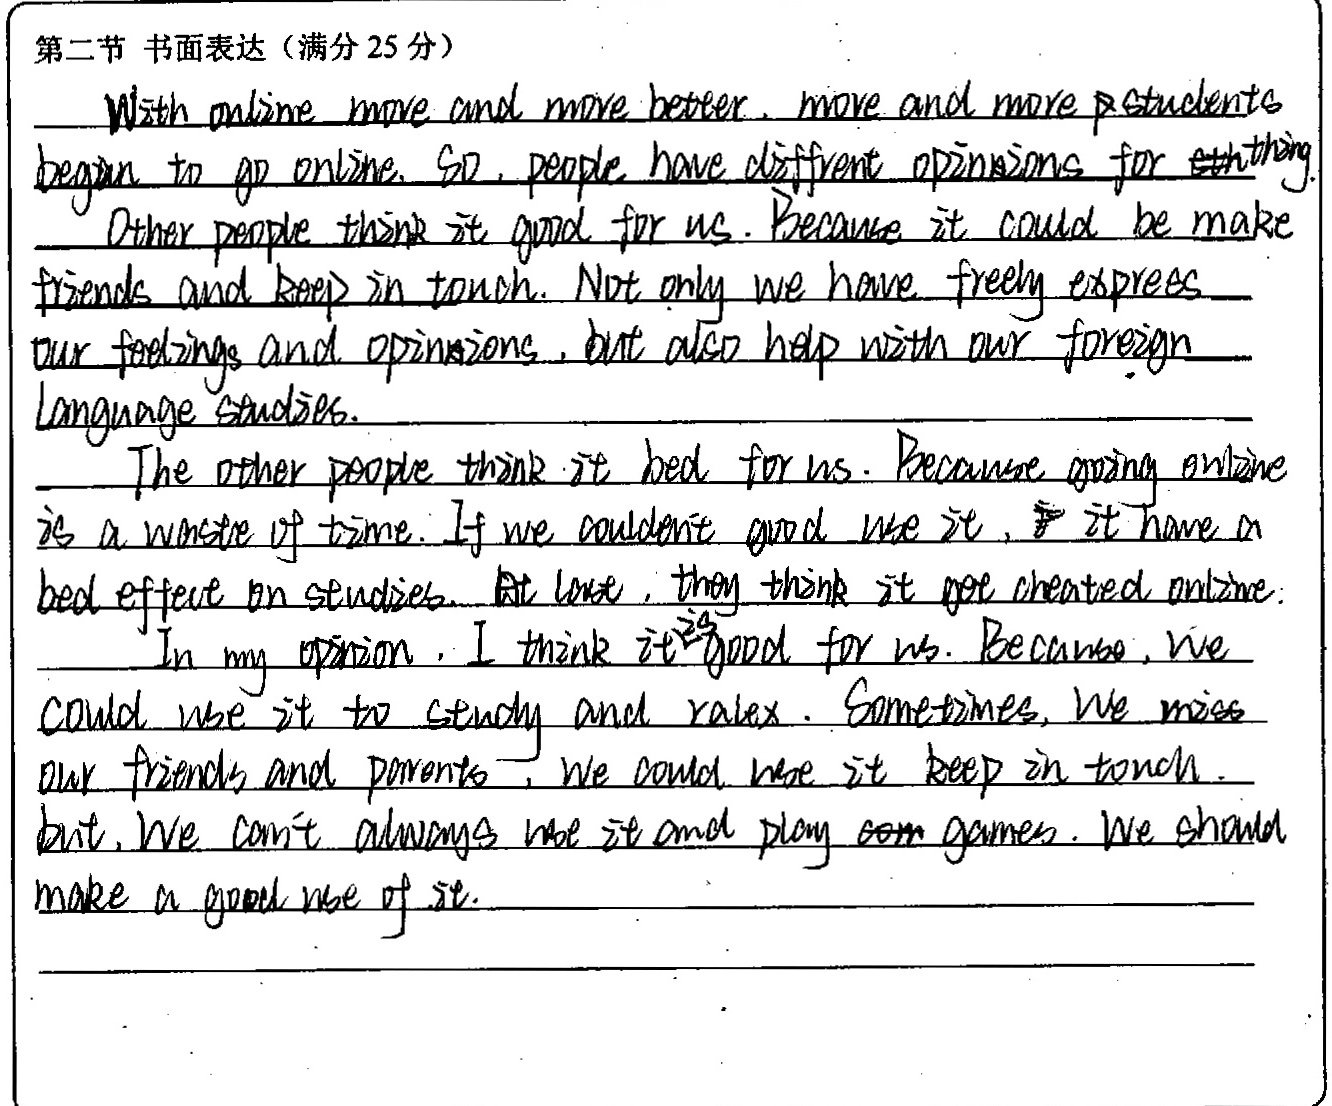 第二节 书面表达（满分 25 分）
With online more and more better. more and more students
began to go online. So. people have diffrent opinions for thing.
Other people think it good for us. Because it could be make
friends and keep in touch. Not only we have freely express
our feelings and opinions, but also help with our foreign
Language studies.
The other people think it bed for us. Because going online
is a waste of time. If we couldent good use it, it have a
bed effect on studies. At last, they think it get cheated online.
In my opinion, I think it is good for us. Because, We
could use it to study and ralex. Sometimes, We miss
our friends and parents, We could use it keep in touch.
but, We can't always use it and play games. We should
make a good use of it.